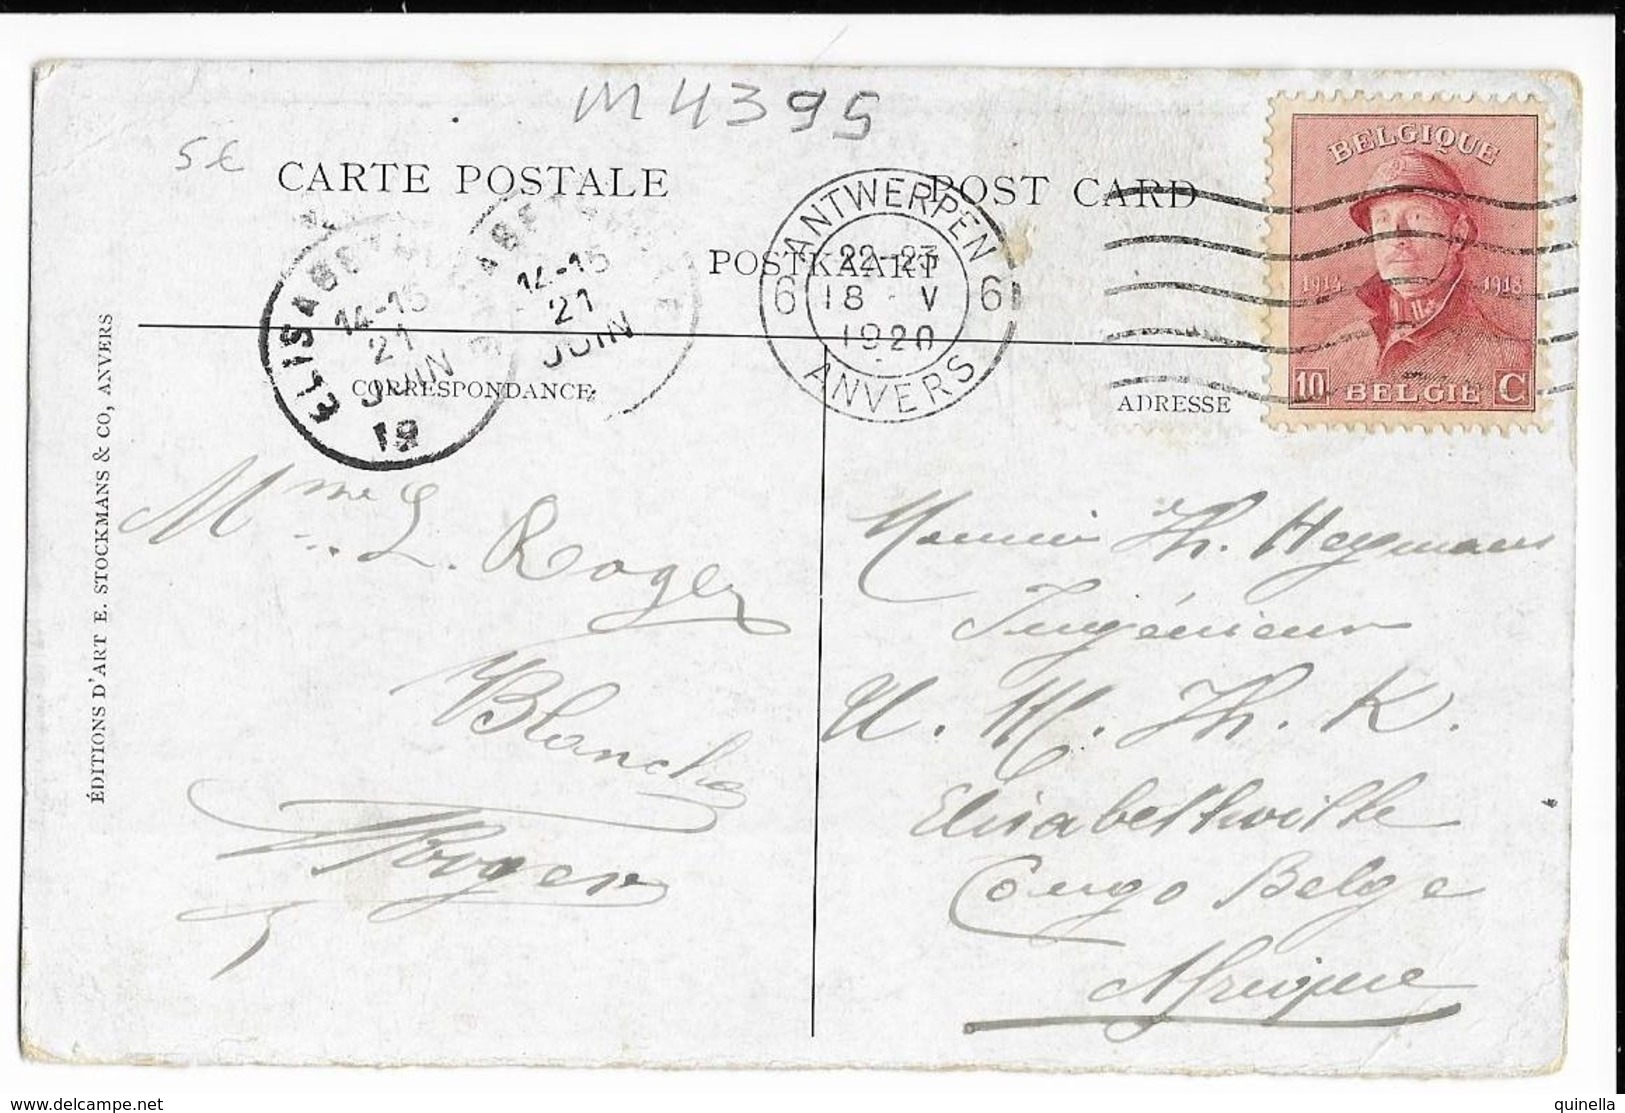 M 4395
5€
CARTE POSTALE
POST CARD
POSTKAART
BELGIQUE
1914 1918
10 BELGIE C
ANTWERPEN
22-23
6 18 V 6
1920
ANVERS
14-15
21
JUIN
19
14-15
21
JUIN
CORRESPONDANCE
ADRESSE
ÉDITIONS D'ART E. STOCKMANS & CO, ANVERS
Mme L. Roger
Blanche
Roger
Monsieur Th. Heymans
Ingénieur
U. M. H. K.
Elisabethville
Congo Belge
Afrique
delcampe.net
quinella